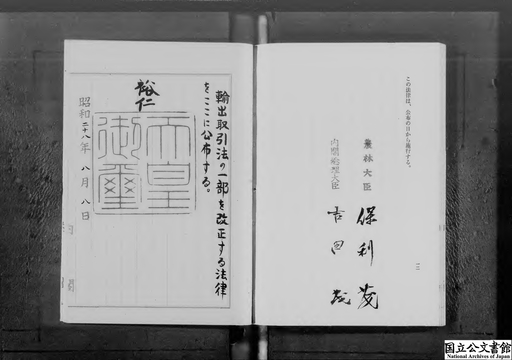 この法律は、公布の日から施行する。
農林大臣 保利茂
内閣総理大臣 吉田茂
一二
輸出取引法の一部を改正する法律
をここに公布する。
裕仁
天皇
御璽
昭和二十八年 八月 八日
国立公文書館
National Archives of Japan